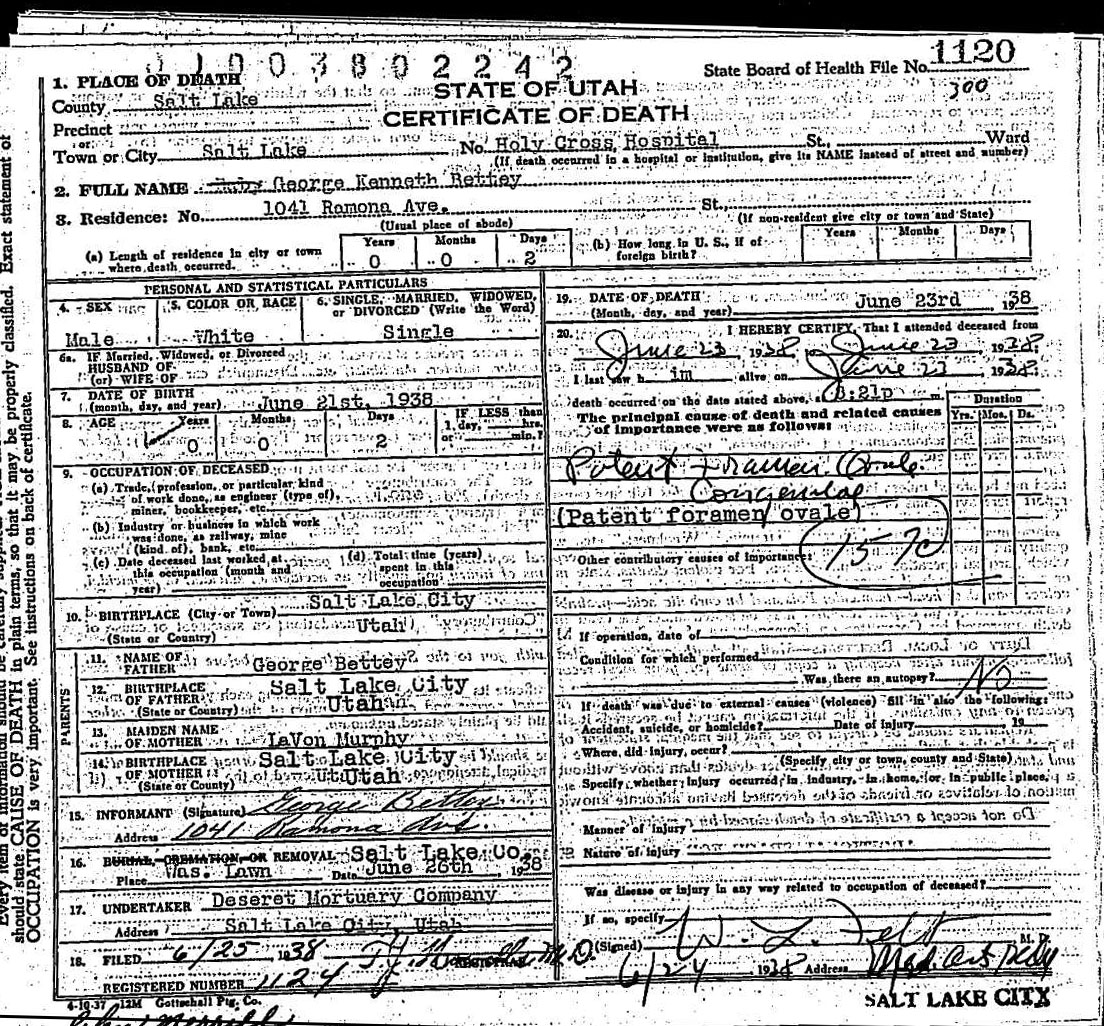 1100380 2242
1120
State Board of Health File No.
300
1. PLACE OF DEATH
STATE OF UTAH
County Salt Lake
CERTIFICATE OF DEATH
Precinct
Town or City Salt Lake No. Holy Cross Hospital St., Ward
(If death occurred in a hospital or institution, give its NAME instead of street and number)
2. FULL NAME George Kenneth Bettey
3. Residence: No. 1041 Ramona Ave. St.,
(Usual place of abode) (If non-resident give city or town and State)
(a) Length of residence in city or town where death occurred. Years 0 Months 0 Days 2
(b) How long in U. S., if of foreign birth? Years Months Days
PERSONAL AND STATISTICAL PARTICULARS
4. SEX
Male
5. COLOR OR RACE
White
6. SINGLE, MARRIED, WIDOWED, or DIVORCED (Write the Word)
Single
6a. IF Married, Widowed, or Divorced
HUSBAND OF
(or) WIFE OF
7. DATE OF BIRTH
(month, day, and year) June 21st, 1938
8. AGE Years 0 Months 0 Days 2
IF LESS than
1 day, hrs.
or min.?
9. OCCUPATION OF DECEASED
(a) Trade, profession, or particular kind
of work done, as engineer (type of),
miner, bookkeeper, etc.
(b) Industry or business in which work
was done, as railway, mine
(kind of), bank, etc.
(c) Date deceased last worked at
this occupation (month and
year)
(d) Total time (years)
spent in this
occupation
10. BIRTHPLACE (City or Town) Salt Lake City
(State or Country) Utah
PARENTS
11. NAME OF FATHER George Bettey
12. BIRTHPLACE OF FATHER Salt Lake City
(State or Country) Utah
13. MAIDEN NAME OF MOTHER LaVon Murphy
14. BIRTHPLACE OF MOTHER Salt Lake City
(State or Country) Utah
15. INFORMANT (Signature) George Bettey
Address 1041 Ramona Ave.
16. BURIAL, CREMATION, OR REMOVAL Salt Lake Co.
Place Was. Lawn Date June 26th, 1938
17. UNDERTAKER Deseret Mortuary Company
Address Salt Lake City, Utah
18. FILED 6/25 1938 M.D.
REGISTRAR
REGISTERED NUMBER 1124
4-10-37 12M Gottschall Ptg. Co.
19. DATE OF DEATH
(Month, day, and year) June 23rd 1938
20. I HEREBY CERTIFY, That I attended deceased from
June 23 1938, to June 23 1938,
I last saw him alive on June 23, 1938
death occurred on the date stated above, 8:21p m.
The principal cause of death and related causes
of importance were as follows:
Duration
Yrs. Mos. Ds.
Patent Foramen Ovale
Congenital
(Patent foramen ovale)
Other contributory causes of importance:
If operation, date of
Condition for which performed
Was there an autopsy? No
If death was due to external causes (violence) fill in also the following:
Accident, suicide, or homicide? Date of injury 19
Where did injury occur?
(Specify city or town, county and State)
Specify whether injury occurred in industry, in home, or in public place.
Manner of injury
Nature of injury
Was disease or injury in any way related to occupation of deceased?
If so, specify
(Signed) W. L. Felt M. D.
6/24 1938 Address Med. Arts Bldg
SALT LAKE CITY
Every item of information should be
should state CAUSE OF DEATH in plain terms, so that it may be properly classified. Exact statement of
OCCUPATION is very important. See instructions on back of certificate.